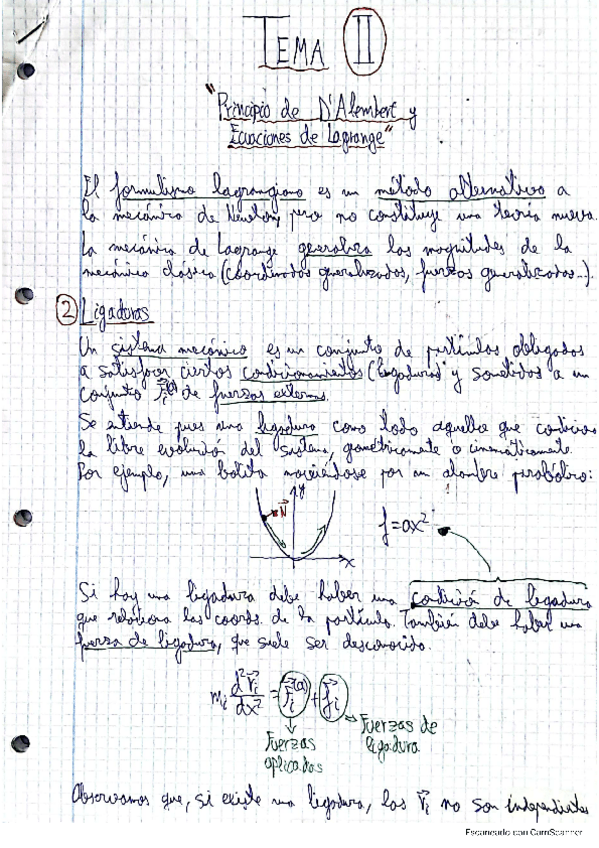 TEMA II
"Principio de D'Alembert y
Ecuaciones de Lagrange"
El formulismo lagrangiano es un método alternativo a
la mecánica de Newton, pero no constituye una teoría nueva.
La mecánica de Lagrange generaliza las magnitudes de la
mecánica clásica (coordenadas generalizadas, fuerzas generalizadas..).
2 Ligaduras
Un sistema mecánico es un conjunto de partículas obligadas
a satisfacer ciertos condicionamientos (ligaduras) y sometidas a un
conjunto F_i^(a) de fuerzas externas.
Se entiende pues una ligadura como todo aquello que condiciona
la libre evolución del sistema, geométricamente o cinemáticamente.
Por ejemplo, una bolita moviéndose por un alambre parabólico:
y
N
x
y=ax²
Si hay una ligadura debe haber una condición de ligadura
que relaciona las coords. de la partícula. También debe haber una
fuerza de ligadura, que suele ser desconocida.
m_i d²r_i/dx² = F_i^(a) + f_i
Fuerzas aplicadas
Fuerzas de ligadura
Observamos que, si existe una ligadura, las r_i no son independientes
Escaneado con CamScanner